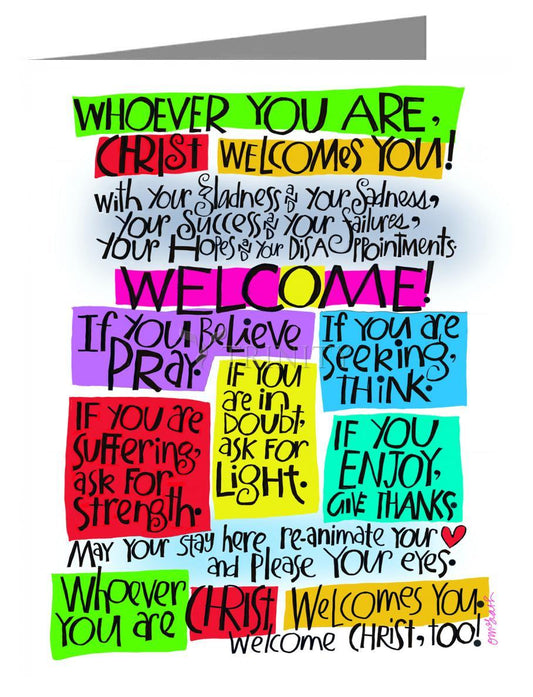 WHOEVER YOU ARE,
CHRIST WELCOMES YOU!
with Your Gladness and Your Sadness,
Your Success and Your Failures,
Your Hopes and Your DISAppointments.
WELCOME!
If You Believe
PRAY.
If you are
seeking,
THINK.
IF YOU
are in
DOUBT,
ask FOR
Light.
IF YOU are
suffering,
ask For
strength.
IF YOU
ENJOY,
GIVE THANKS.
MAY YOUR stay here re-animate Your ❤
and Please YOUR eyes.
Whoever
YOU are
CHRIST
Welcomes You.
welcome CHRIST, TOO!
TRINITY